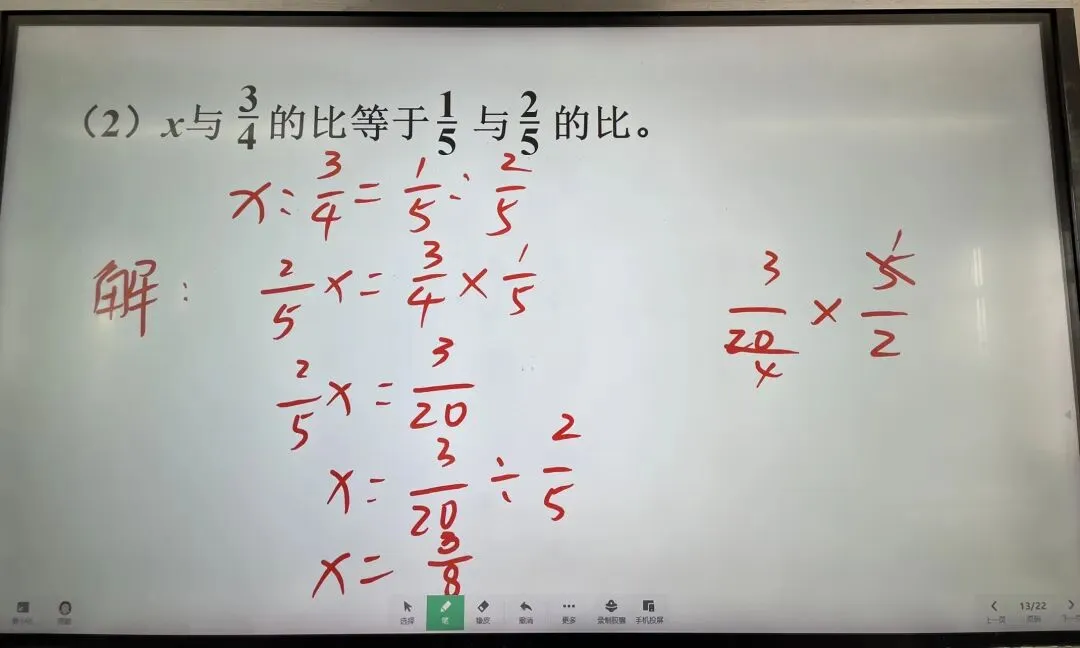 （2）x与 3/4 的比等于 1/5 与 2/5 的比。
x : 3/4 = 1/5 : 2/5
解： 2/5 x = 3/4 × 1/5
2/5 x = 3/20
x = 3/20 ÷ 2/5
x = 3/8
3/20 × 5/2
1
4
选择 笔 橡皮 撤消 更多 录制胶囊 手机投屏
13/22
上一页 页面 下一页